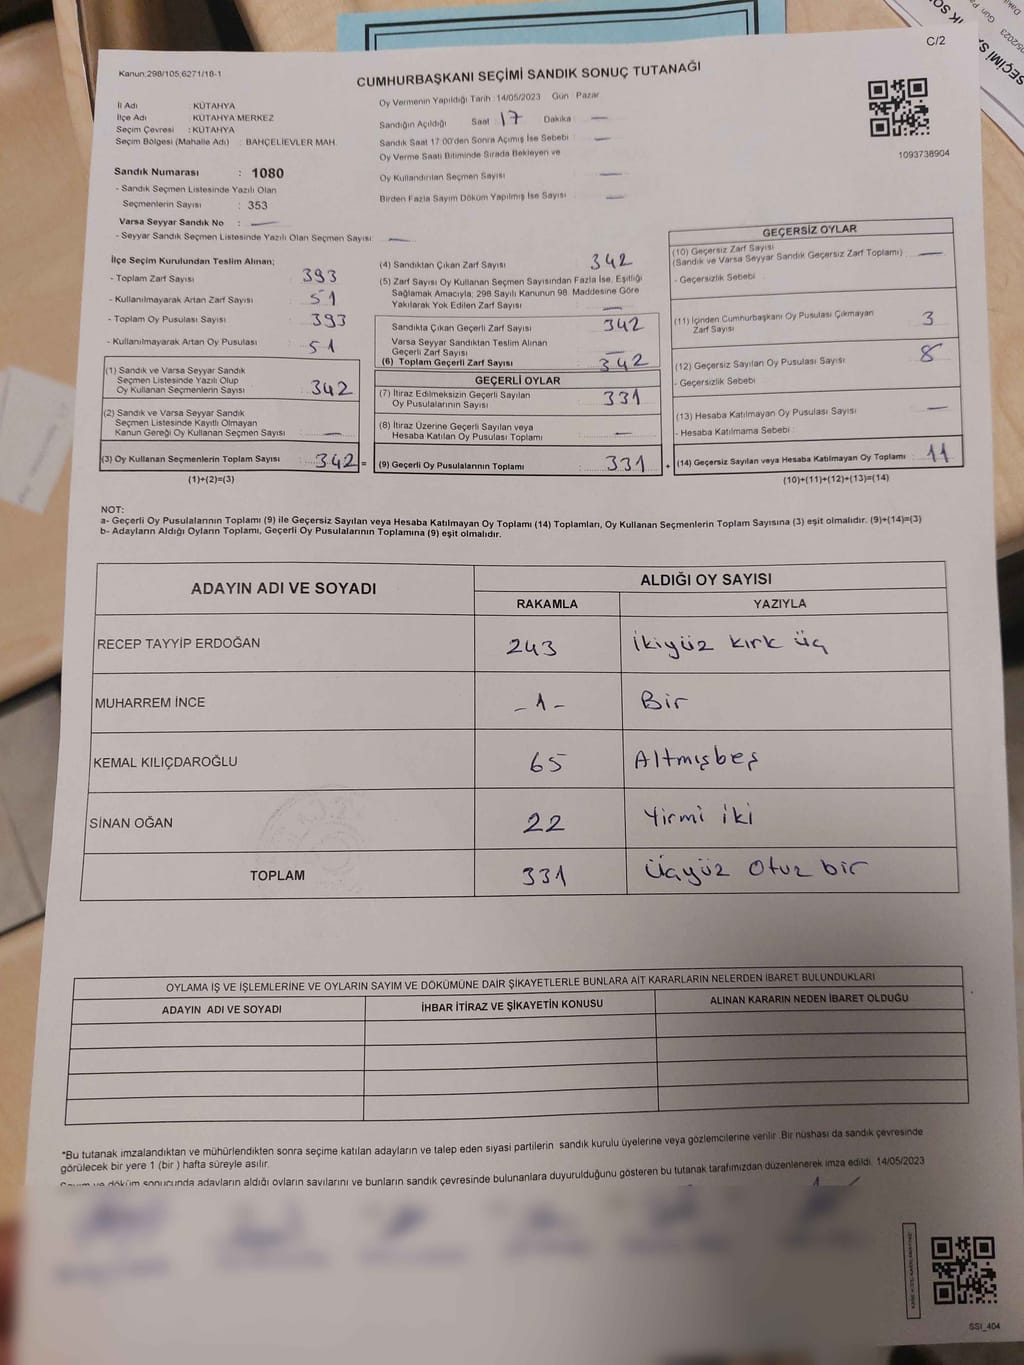 C/2
Kanun;298/105;6271/18-1
CUMHURBAŞKANI SEÇİMİ SANDIK SONUÇ TUTANAĞI
İl Adı : KÜTAHYA
İlçe Adı : KÜTAHYA MERKEZ
Seçim Çevresi : KÜTAHYA
Seçim Bölgesi (Mahalle Adı) : BAHÇELİEVLER MAH.
Oy Vermenin Yapıldığı Tarih :14/05/2023 Gün : Pazar
Sandığın Açıldığı Saat : 17 Dakika : —
Sandık Saat 17:00'den Sonra Açımış İse Sebebi : —
Oy Verme Saati Bitiminde Sırada Bekleyen ve
Oy Kullandırılan Seçmen Sayısı : —
Birden Fazla Sayım Döküm Yapılmış İse Sayısı : —
1093738904
Sandık Numarası : 1080
- Sandık Seçmen Listesinde Yazılı Olan
Seçmenlerin Sayısı : 353
Varsa Seyyar Sandık No : —
- Seyyar Sandık Seçmen Listesinde Yazılı Olan Seçmen Sayısı: —
İlçe Seçim Kurulundan Teslim Alınan;
- Toplam Zarf Sayısı : 393
- Kullanılmayarak Artan Zarf Sayısı : 51
- Toplam Oy Pusulası Sayısı : 393
- Kullanılmayarak Artan Oy Pusulası : 51
(1) Sandık ve Varsa Seyyar Sandık
Seçmen Listesinde Yazılı Olup
Oy Kullanan Seçmenlerin Sayısı : 342
(2) Sandık ve Varsa Seyyar Sandık
Seçmen Listesinde Kayıtlı Olmayan
Kanun Gereği Oy Kullanan Seçmen Sayısı : —
(3) Oy Kullanan Seçmenlerin Toplam Sayısı : 342 =
(1)+(2)=(3)
(4) Sandıktan Çıkan Zarf Sayısı : 342
(5) Zarf Sayısı Oy Kullanan Seçmen Sayısından Fazla İse, Eşitliği
Sağlamak Amacıyla; 298 Sayılı Kanunun 98. Maddesine Göre
Yakılarak Yok Edilen Zarf Sayısı : —
Sandıkta Çıkan Geçerli Zarf Sayısı : 342
Varsa Seyyar Sandıktan Teslim Alınan
Geçerli Zarf Sayısı : —
(6) Toplam Geçerli Zarf Sayısı : 342
GEÇERLİ OYLAR
(7) İtiraz Edilmeksizin Geçerli Sayılan
Oy Pusulalarının Sayısı : 331
(8) İtiraz Üzerine Geçerli Sayılan veya
Hesaba Katılan Oy Pusulası Toplamı : —
(9) Geçerli Oy Pusulalarının Toplamı : 331 +
GEÇERSİZ OYLAR
(10) Geçersiz Zarf Sayısı
(Sandık ve Varsa Seyyar Sandık Geçersiz Zarf Toplamı) : —
- Geçersizlik Sebebi :
(11) İçinden Cumhurbaşkanı Oy Pusulası Çıkmayan
Zarf Sayısı : 3
(12) Geçersiz Sayılan Oy Pusulası Sayısı : 8
- Geçersizlik Sebebi :
(13) Hesaba Katılmayan Oy Pusulası Sayısı : —
- Hesaba Katılmama Sebebi :
(14) Geçersiz Sayılan veya Hesaba Katılmayan Oy Toplamı : 11
(10)+(11)+(12)+(13)=(14)
NOT:
a- Geçerli Oy Pusulalarının Toplamı (9) ile Geçersiz Sayılan veya Hesaba Katılmayan Oy Toplamı (14) Toplamları, Oy Kullanan Seçmenlerin Toplam Sayısına (3) eşit olmalıdır. (9)+(14)=(3)
b- Adayların Aldığı Oyların Toplamı, Geçerli Oy Pusulalarının Toplamına (9) eşit olmalıdır.
ADAYIN ADI VE SOYADI
ALDIĞI OY SAYISI
RAKAMLA YAZIYLA
RECEP TAYYİP ERDOĞAN 243 İkiyüz kırk üç
MUHARREM İNCE -1- Bir
KEMAL KILIÇDAROĞLU 65 Altmışbeş
SİNAN OĞAN 22 Yirmi iki
TOPLAM 331 Üçyüz Otuz bir
OYLAMA İŞ VE İŞLEMLERİNE VE OYLARIN SAYIM VE DÖKÜMÜNE DAİR ŞİKAYETLERLE BUNLARA AİT KARARLARIN NELERDEN İBARET BULUNDUKLARI
ADAYIN ADI VE SOYADI İHBAR İTİRAZ VE ŞİKAYETİN KONUSU ALINAN KARARIN NEDEN İBARET OLDUĞU
*Bu tutanak imzalandıktan ve mühürlendikten sonra seçime katılan adayların ve talep eden siyasi partilerin sandık kurulu üyelerine veya gözlemcilerine verilir. Bir nüshası da sandık çevresinde
görülecek bir yere 1 (bir ) hafta süreyle asılır.
Sayım ve döküm sonucunda adayların aldığı oyların sayılarını ve bunların sandık çevresinde bulunanlara duyurulduğunu gösteren bu tutanak tarafımızdan düzenlenerek imza edildi. 14/05/2023
SSİ_404